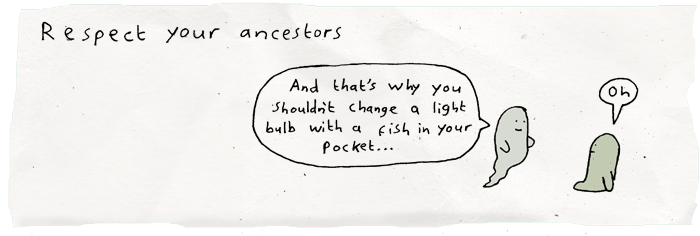 Respect your ancestors
And that's why you
shouldn't change a light
bulb with a fish in your
pocket...
Oh